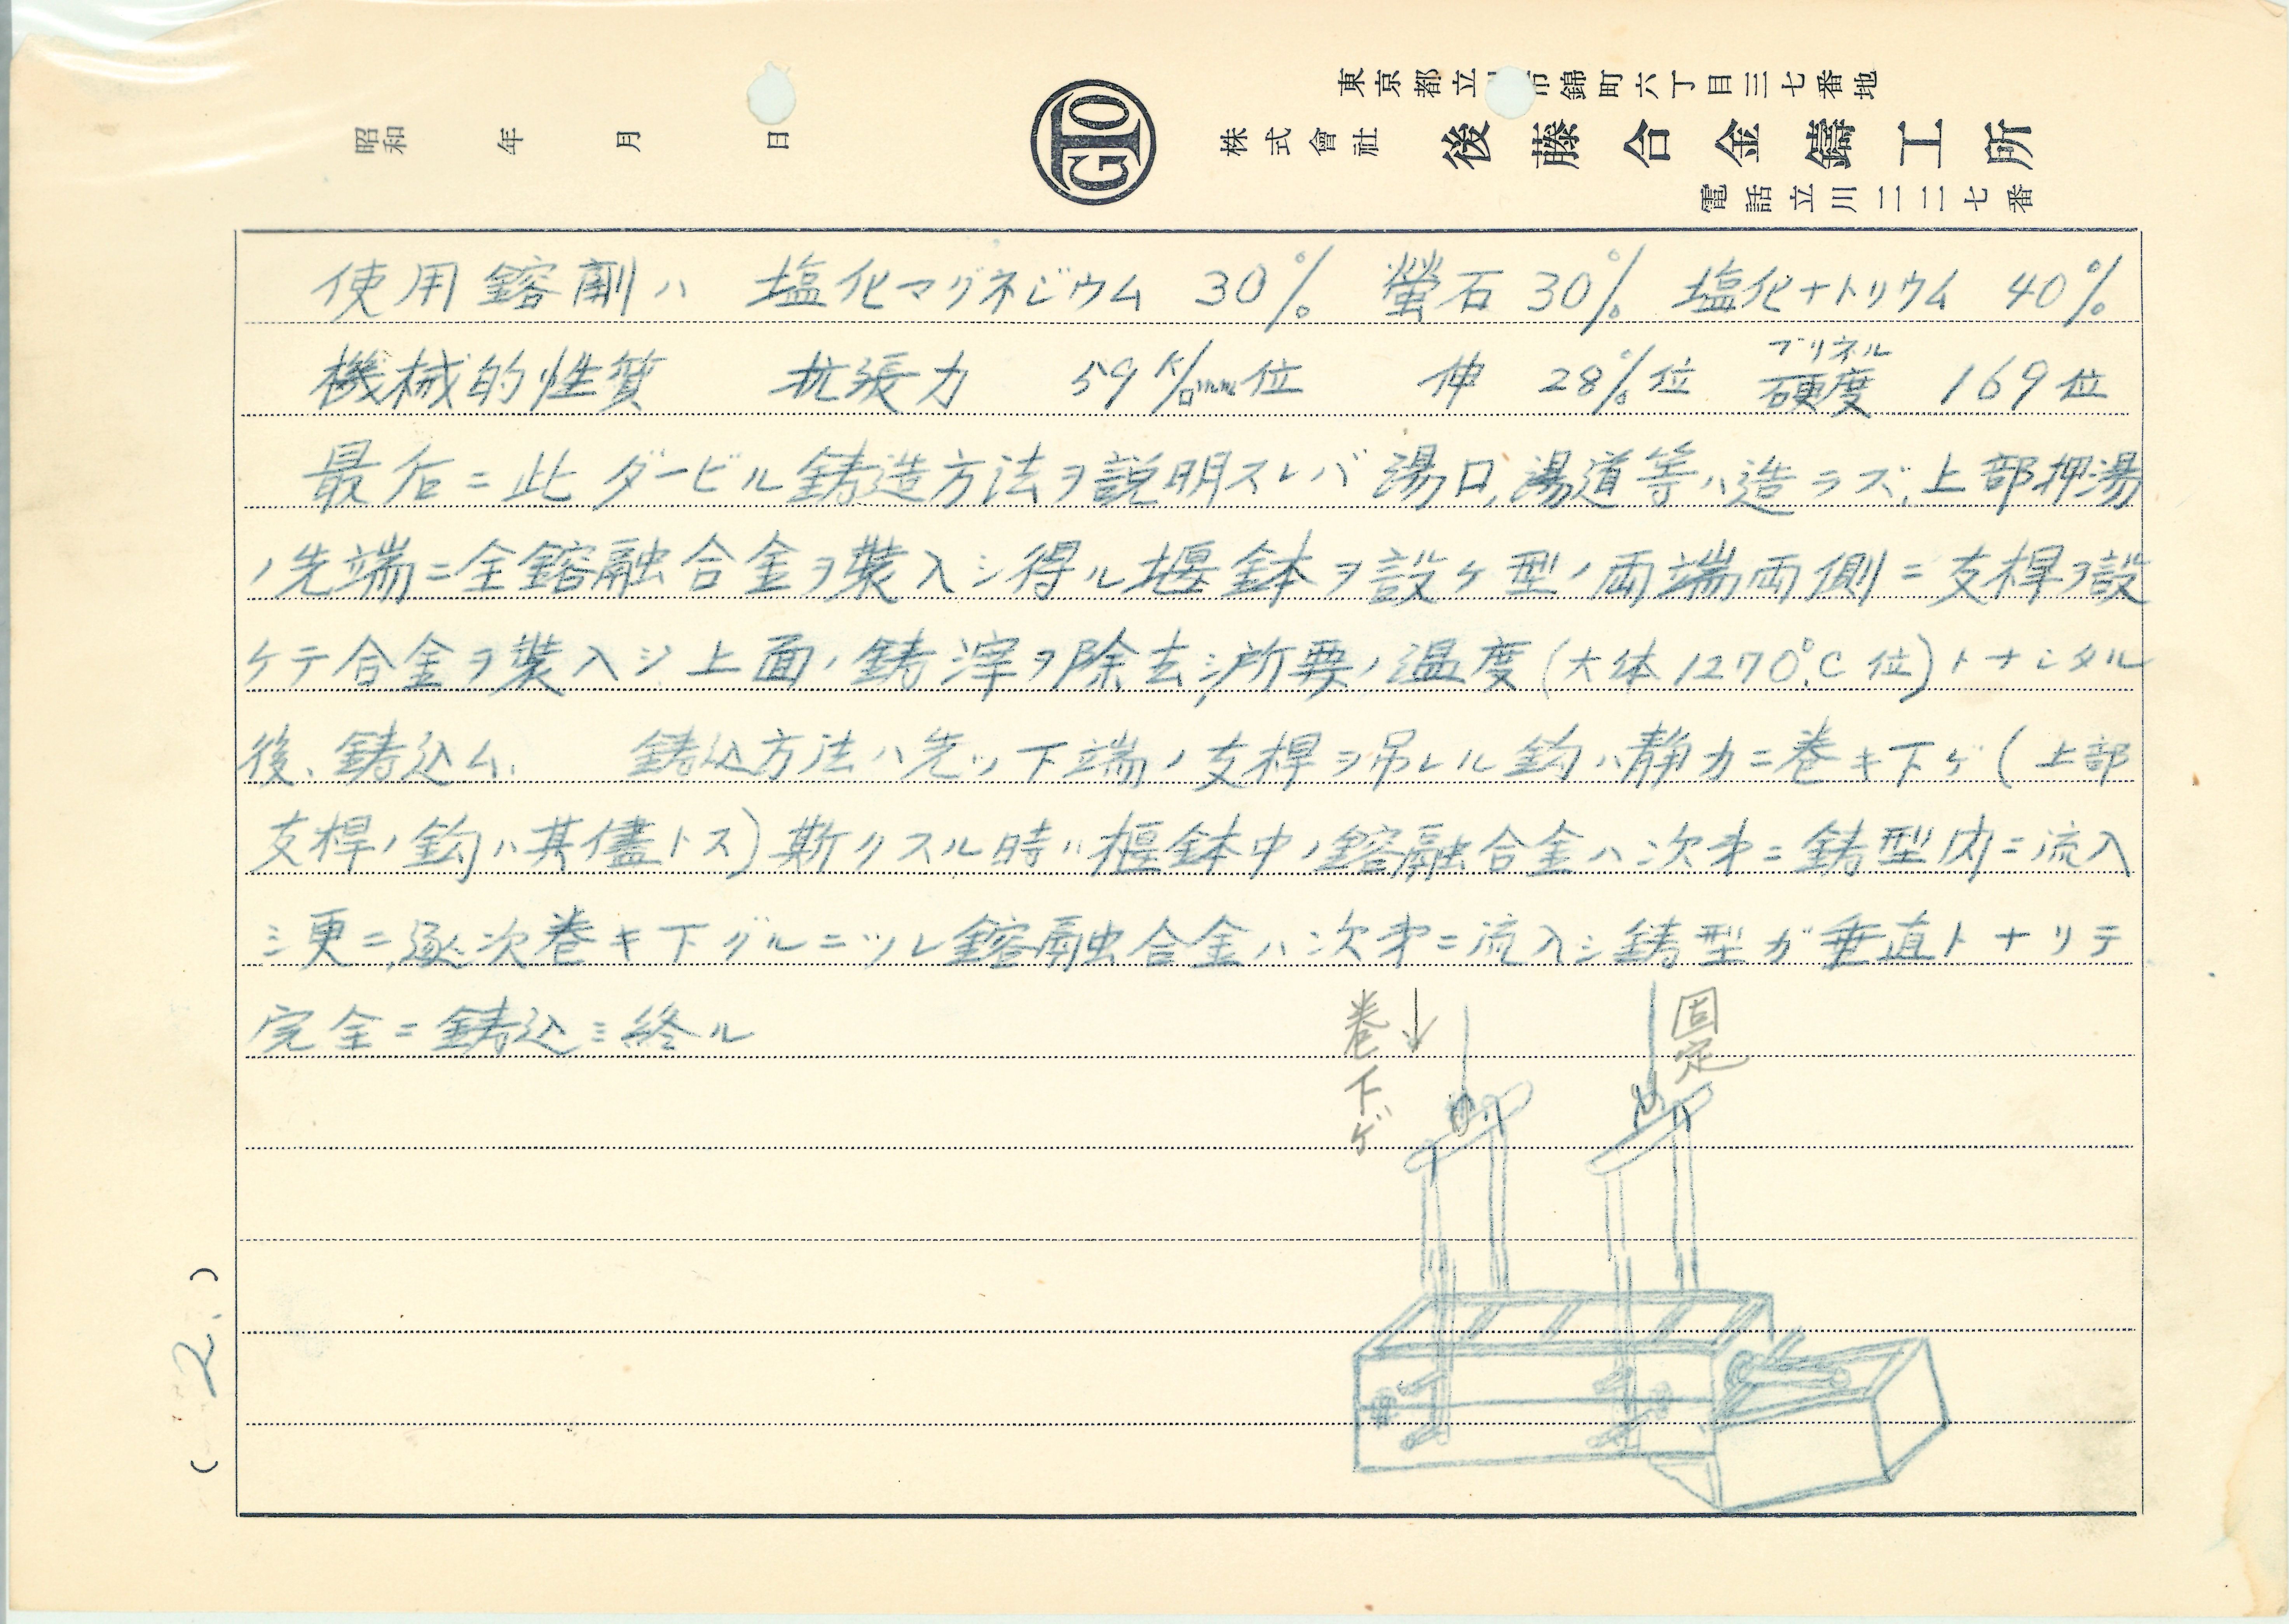 東京都立 市錦町六丁目三七番地
株式會社 後藤合金鑄工所
電話立川二二七番
昭和 年 月 日
GTO
使用鎔劑ハ 塩化マグネジウム 30% 螢石 30% 塩化ナトリウム 40%
機械的性質 抗張力 59 K/□mm位 伸 28%位 ブリネル硬度 169位
最后ニ此ダービル鋳造方法ヲ説明スレバ湯口,湯道等ハ造ラズ,上部押湯
ノ先端ニ全鎔融合金ヲ装入シ得ル堰鉢ヲ設ケ型ノ両端両側ニ支桿ヲ設
ケテ合金ヲ装入シ上面ノ鋳滓ヲ除去シ所要ノ温度(大体1270°C位)トナシタル
後、鋳込ム. 鋳込方法ハ先ッ下端ノ支桿ヲ吊レル鈎ハ静カニ巻キ下ゲ(上部
支桿ノ鈎ハ其儘トス)斯クスル時ハ堰鉢中ノ鎔融合金ハ次才ニ鋳型内ニ流入
シ更ニ逐次巻キ下グルニツレ鎔融合金ハ次才ニ流入シ鋳型ガ垂直トナリテ
完全ニ鋳込ミ終ル
巻下ゲ
固定
(2.)